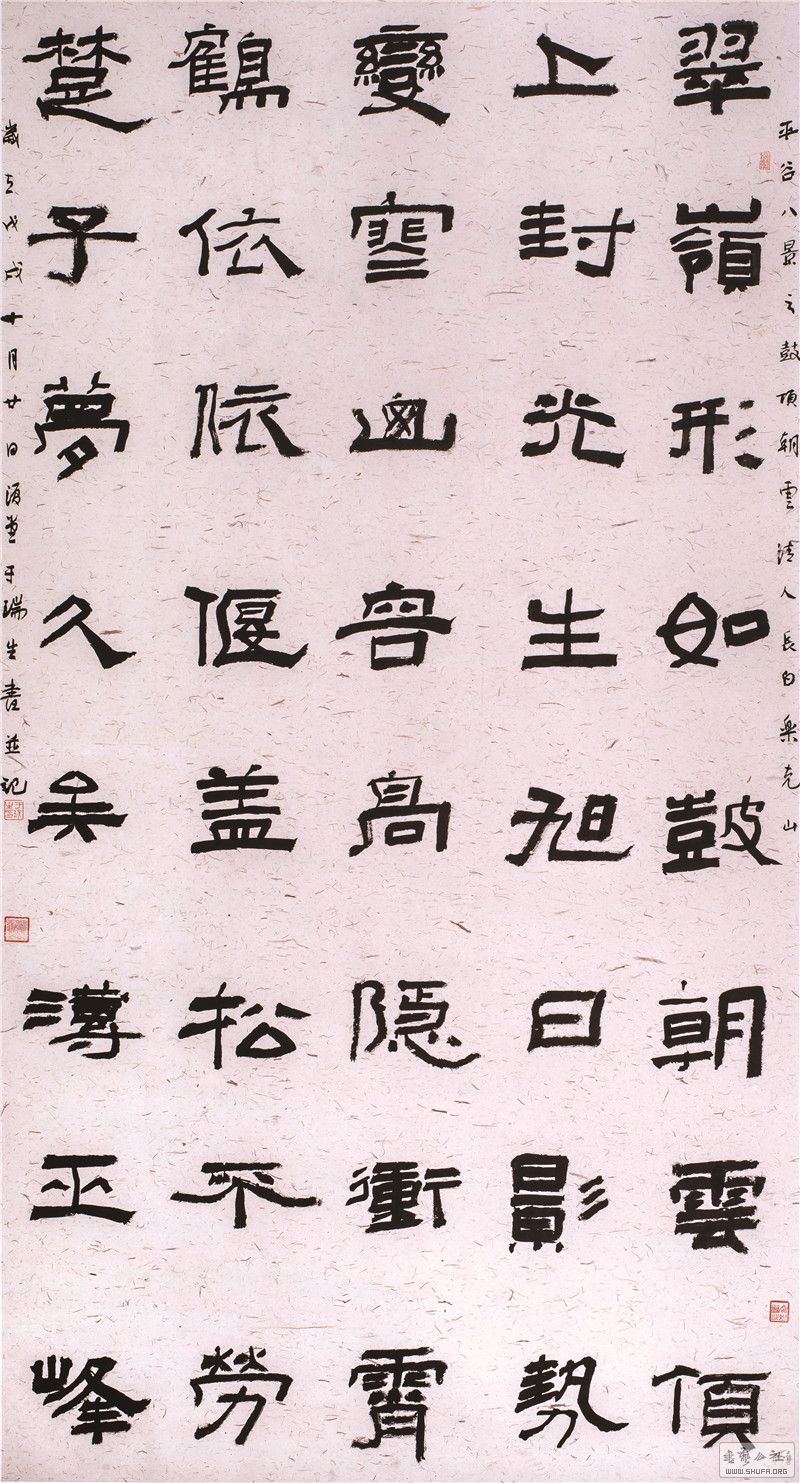 平谷八景之鼓頂朝雲清人長白樂克山
翠嶺形如鼓朝雲頂
上封光生旭日影勢
變容高隱衝霄
鶴依依偃盖松不勞
楚子夢久矣薄巫峰
歲在戊戌十月廿日于瑞生書並記
WWW.SHUFA.ORG